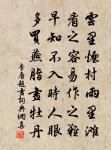 雲里煙村雨里灘
看之容易作之難
早知不入時人眼
多買燕脂畫牡丹
李唐題畫詞典網高